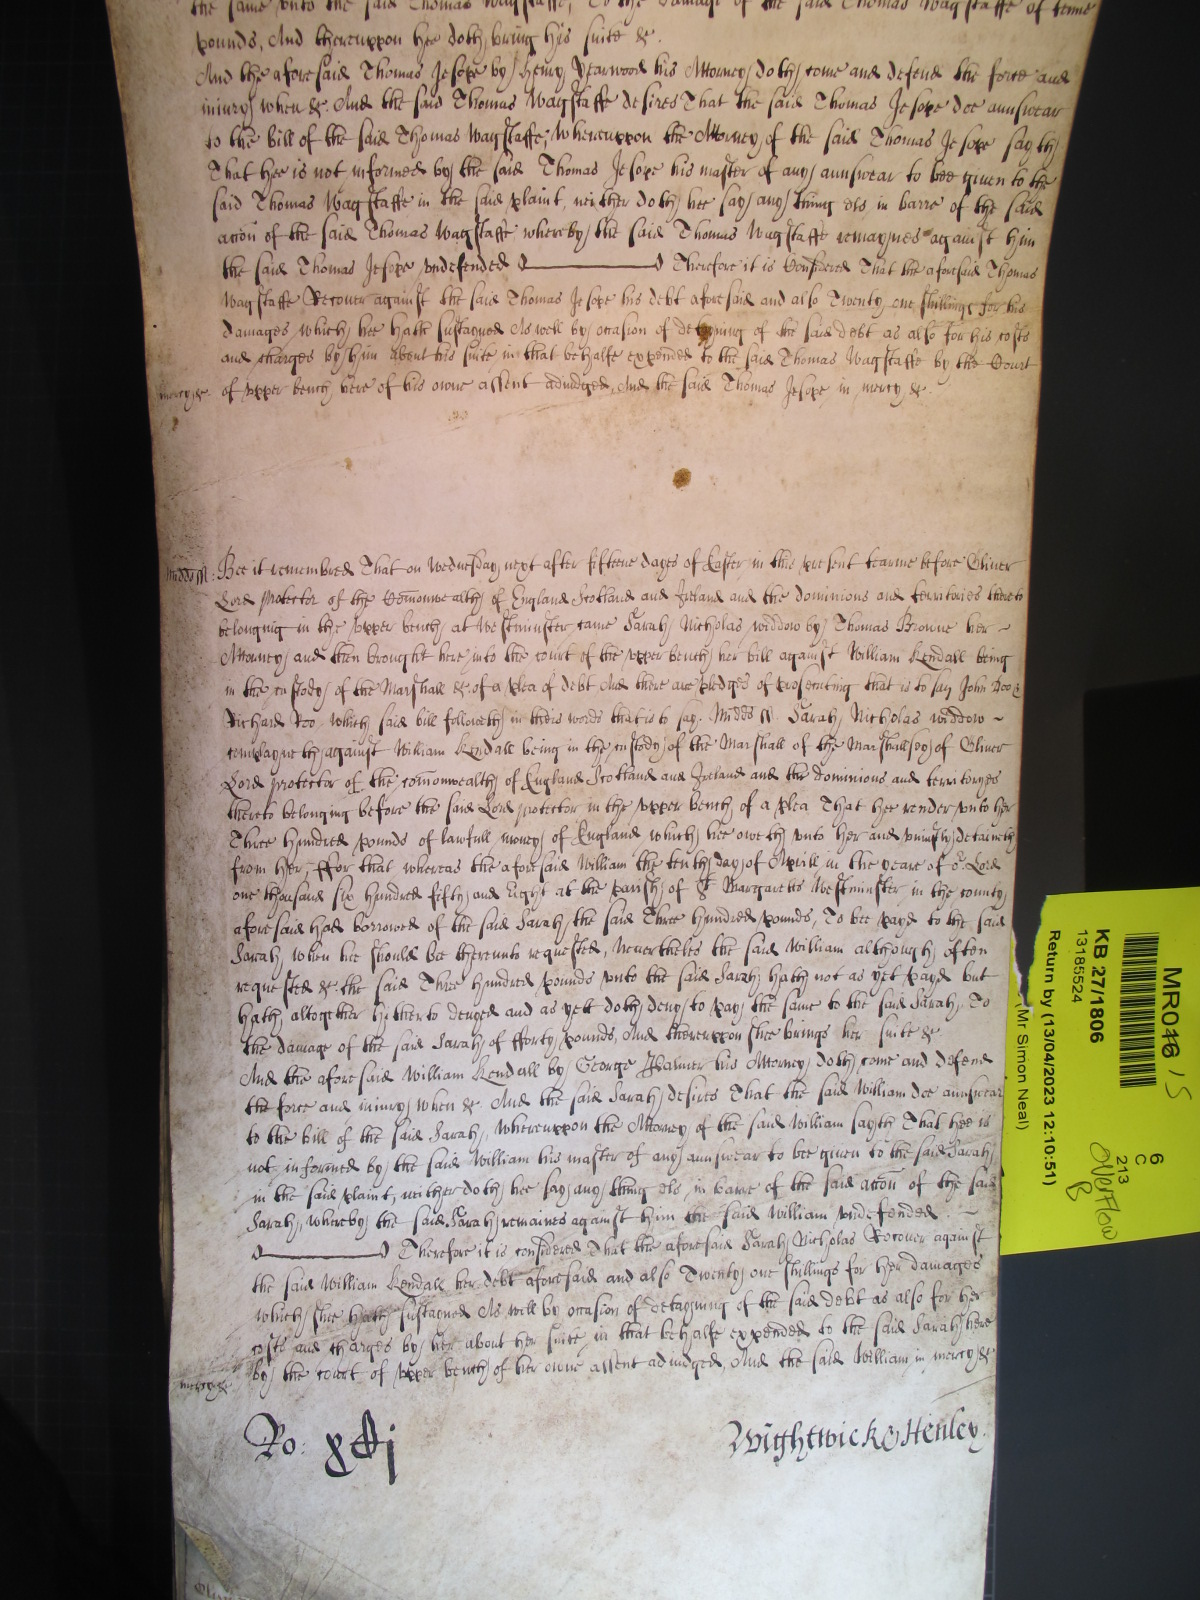 the same unto the said Thomas Wagstaffe, To the damage of the said Thomas Wagstaffe of tenne
pounds, And thereuppon hee doth bring his suite &c.
And the aforesaid Thomas Jesope by Henry Yearwood his Attorney doth come and defend the force and
iniury when &c. And the said Thomas Wagstaffe desires That the said Thomas Jesope doe aunswear
to the bill of the said Thomas Wagstaffe, Whereuppon the Attorney of the said Thomas Jesope sayth
That hee is not informed by the said Thomas Jesope his master of any aunswear to bee given to the
said Thomas Wagstaffe in the said plaint, neither doth hee say any thing els in barre of the said
accon of the said Thomas Wagstaffe whereby the said Thomas Wagstaffe remaynes against him
the said Thomas Jesope undefended Therefore it is Considered That the aforesaid Thomas
Wagstaffe Recover against the said Thomas Jesope his debt aforesaid and also Twenty one shillings for his
damages which hee hath sustayned As well by occasion of detayning of the said debt as also for his costs
and charges by him about his suite in that behalfe expended to the said Thomas Wagstaffe by the Court
mercy &c. of upper bench here of his owne assent adiudged, And the said Thomas Jesope in mercy &c.
Midds ss: Bee it remembred That on Wednesday next after fifteene dayes of Easter in this present tearme before Oliver
Lord Protector of the Comonwealth of England Scotland and Ireland and the dominions and territories thereto
belonging in the upper bench at Westminster came Sarah Nicholas widdow by Thomas Browne her
Attorney and then brought here into the court of the upper bench her bill against William Kendall being
in the custody of the Marshall &c. of a plea of debt And there are pledges of prosecuting that is to say John Doo &
Richard Roo which said bill followeth in theis words that is to say. Midds ss. Sarah Nicholas widdow
complayneth against William Kendall being in the custody of the Marshall of the Marshallsey of Oliver
Lord protector of the comonwealth of England Scotland and Ireland and the dominions and territoryes
thereto belonging before the said Lord protector in the upper bench of a plea That hee render unto her
Three hundred pounds of lawfull money of England which hee oweth unto her and uniustly detaineth
from her, ffor that whereas the aforesaid William the tenth day of Aprill in the yeare of or. Lord
one thousand six hundred fifty and Eight at the parish of St Margaretts Westminster in the county
aforesaid had borrowed of the said Sarah the said Three hundred pounds, To bee payd to the said
Sarah when hee should bee thereunto requested, Neverthelés the said William although often
requested &c. the said Three hundred pounds unto the said Sarah hath not as yet payd but
hath altogether hitherto denyed and as yett doth deny to pay the same to the said Sarah, To
the damage of the said Sarah of fforty pounds, And thereuppon shee brings her suite &c
And the aforesaid William Kendall by George his Attorney doth come and defend
the force and iniury when &c. And the said Sarah desires That the said William doe aunswear
to the bill of the said Sarah, Whereuppon the Attorney of the said William sayth That hee is
not informed by the said William his master of any aunswear to bee given to the said Sarah
in the said plaint, neither doth hee say any thing els in barre of the said accon of the said
Sarah, whereby the said Sarah remaines against him the said William undefended
Therefore it is considered That the aforesaid Sarah Nicholas Recover against
the said William Kendall her debt aforesaid and also Twenty one shillings for her damages
which shee hath sustayned As well by occasion of detayning of the said debt as also for her
costs and charges by her about her suite in that behalfe expended to the said Sarah here
mercy &c by the court of upper bench of her owne assent adiudged, And the said William in mercy &c
Ro:
Wightwick & Henley.
MR046 15
KB 27/1806
13185524
Return by (13/04/2023 12:10:51)
(Mr Simon Neal)
6
C
213
Overflow
B